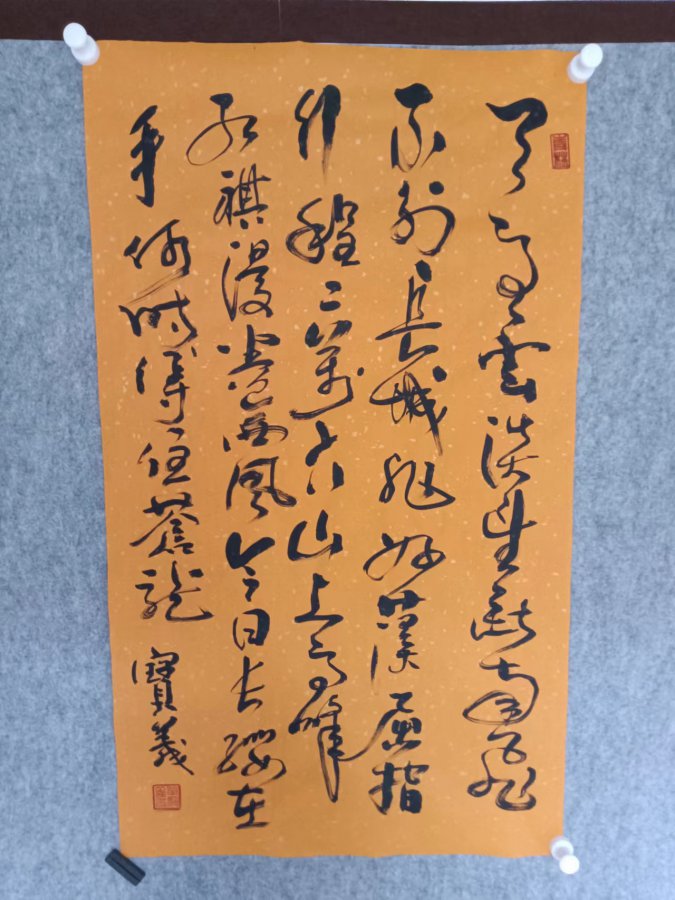 天高雲淡望斷南飛
不到長城非好漢屈指
行程二萬六山上高峰
紅旗漫卷西風今日長纓在
手何時縛住蒼龍
寶義